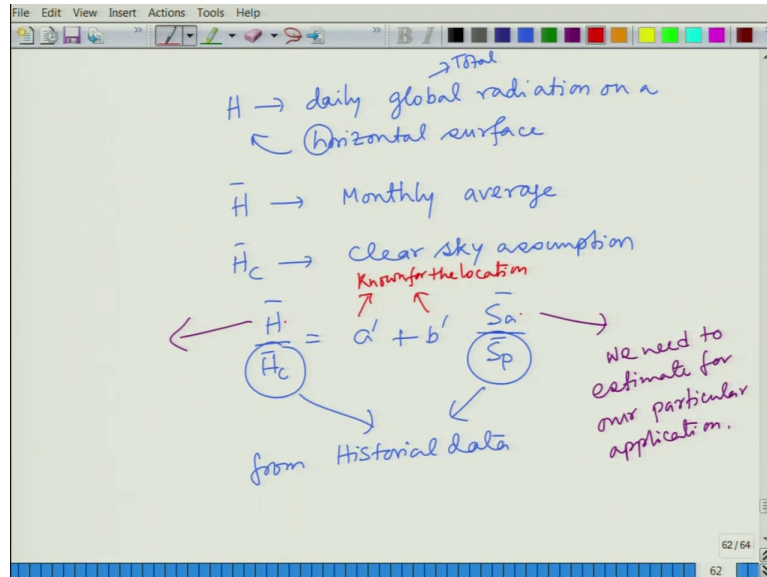 File Edit View Insert Actions Tools Help
» » B I »
→Total
H → daily global radiation on a
horizontal surface
H̄ → Monthly average
H̄c → Clear sky assumption
Known for the location
H̄. / H̄c = a' + b' S̄a. / S̄p
we need to
estimate for
our particular
application.
from Historial data
62/64
62